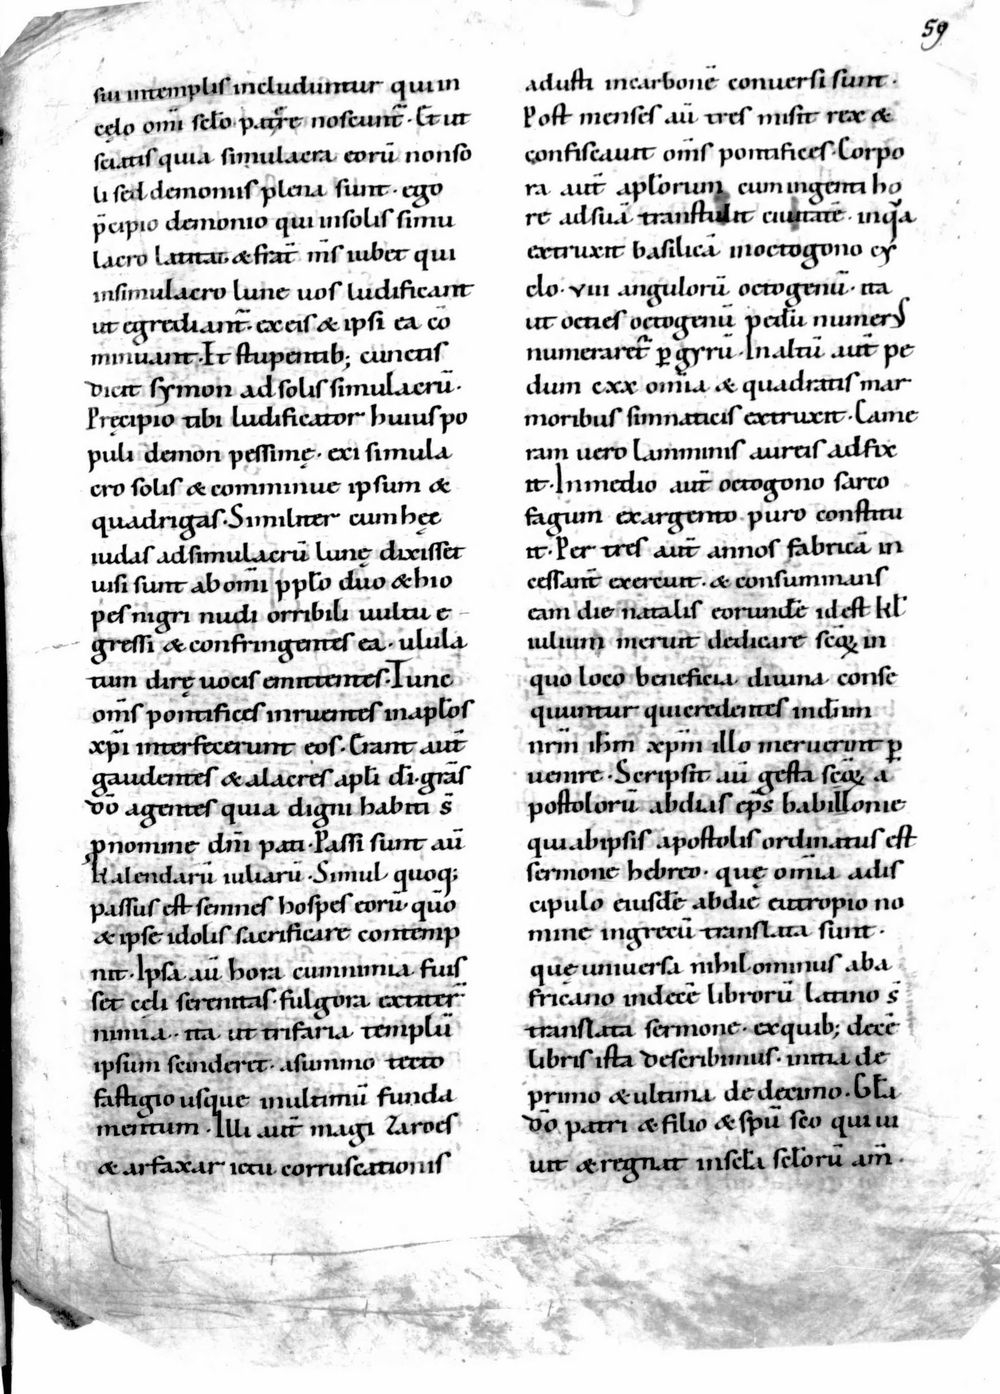 59
sui intemplis includuntur qui in
cęlo om̄i sc̄lo patȩre noscunt̄. Et ut
sciatis quia simulacra eorū non so
li sed demoniis plena sunt. ego
p̄cipio demonio qui insolis simu
lacro latitat & frat̄ m̄s iubet qui
insimulacro lune uos ludificant
ut egrediant̄. ex eis & ipsi ea cō
minuant. It stupentib; cunctis
dicit symon ad solis simulacrū.
Pręcipio tibi ludificator huius po
puli demon pessimę. exi simula
cro solis & comminue ipsum &
quadrigas. Similiter cum hęc
iudas ad simulacrū lunę dixisset
uisi sunt ab om̄i pplo duo &hio
pes nigri nudi orribili uultu e
gressi & confringentes ea. ulula
tum dirę uocis emittentes. Tunc
om̄s pontifices inruentes in apl̄os
xp̄i interfecerunt eos. Erant aut̄
gaudentes & alacres apl̄i d̄i. grās
dō agentes quia digni habiti s̄
p nomine dn̄i pati. Passi sunt aū
kalendarū iuliarū. Simul quoq;
passus est semnes hospes eorū quō
& ipse idolis sacrificare contemp
nit. Ipsa aū hora cum nimia fuis
set cęli serenitas. fulgora extiter̄
nimia. ita ut trifaria templū
ipsum scinderet. asummo tecto
fastigio usque inultimū funda
mentum. Illi aut̄ magi Zaroes
& arfaxar ictu corruscationis
adusti incarbonē conuersi sunt.
Post menses aū tres misit rex &
confiscauit om̄s pontifices. Corpo
ra aut̄ apl̄orum cum ingenti ho
re ad suā transtulit ciuitatē. inq̄a
extruxit basilicā inoctogono cy
clo. viii angulorū octogenū. ita
ut octies octogenū pedū numerꝰ
numeraret̄ p gyrū. In altū aut̄ pe
dum cxx om̄ia & quadratis mar
moribus simnaticis extruxit. Came
ram uero lamminis aureis adfix
it. In medio aut̄ octogono sarco
fagum exargento puro constitu
it. Per tres aut̄ annos fabricā in
cessant̄ exercuit. & consummans
eam die natalis eorundē id est kl̄
iulium meruit dedicare scōꝝ in
quo loco beneficia diuina conse
quuntur qui credentes in dn̄m
nr̄m ih̄m xp̄m illo meruerint p
uenire. Scripsit aū gesta scōꝝ a
postolorū abdias ep̄s babillonie
qui ab ipsis apostolis ordinatus est
sermone hebreo. quę om̄ia adis
cipulo eiusdē abdię eutropio no
mine ingrecū translata sunt.
quę uniuersa nihilominus aba
fricano indecē librorū latino s̄
translata sermone. ex quib; decē
libris ista describimus. initia de
primo & ultima de decimo. Gl̄a
dō patri & filio & sp̄u sc̄o qui ui
uit & regnat in sc̄la sc̄lorū am̄.